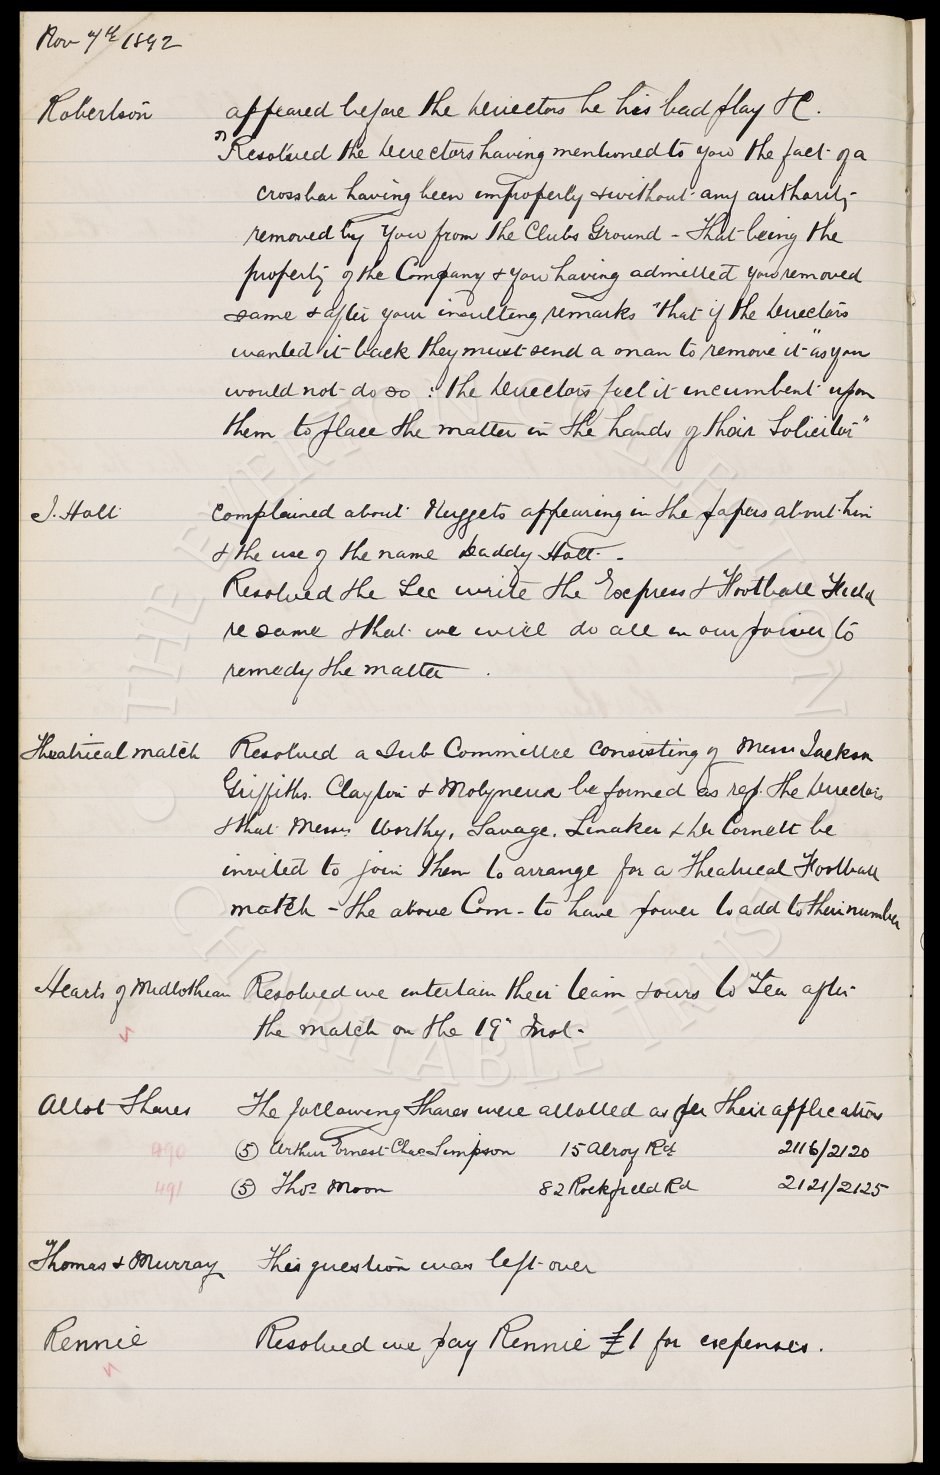 Nov 7th 1892
Robertson appeared before the Directors he his bad play &c.
Resolved the Directors having mentioned to you the fact of a
crossbar having been improperly & without any authority
removed by you from the Clubs Ground - That being the
property of the Company & you having admitted you removed
same & after your insulting remarks "that if the Directors
wanted it back they must send a man to remove it" as you
would not do so : the Directors feel it incumbent upon
them to place the matter in the hands of their Solicitor"
J. Holt complained about Nuggets appearing in the papers about him
& the use of the name Daddy Holt -
Resolved the Sec write the Express & Football Field
re same & that we will do all in our power to
remedy the matter.
Theatrical match Resolved a Sub Committee consisting of Messrs Jackson
Griffiths. Clayton & Molyneux be formed as rep. the Directors
& that Messrs Worthy, Savage, Linaker & De Cornett be
invited to join them to arrange for a Theatrical Football
match - the above Com- to have power to add to their number
Hearts of Midlothian Resolved we entertain their team & ours to Tea after
the match on the 19th Inst-
Allot Shares The following Shares were allotted as per their application
490 (5) Arthur Ernest Chas Simpson 15 Alroy Rd 2116/2120
491 (5) Thos Moon 82 Rockfield Rd 2121/2125
Thomas & Murray This question was left over
Rennie Resolved we pay Rennie £1 for expenses.
THE EVERTON COLLECTION
CHARITABLE TRUST